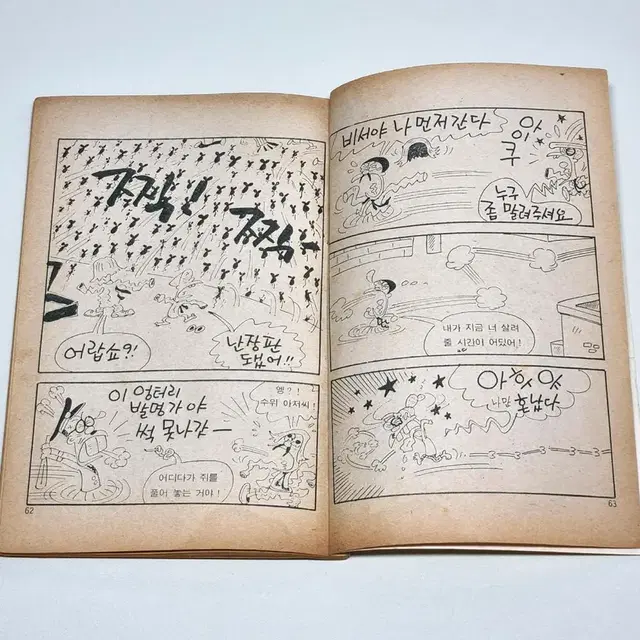 찌찍!
찌찍
어랍쇼?!
난장판
됐어!!
이 엉터리
발명가야
썩 못나가—
엥?!
수위 아저씨!
어디다가 쥐를
풀어 놓는 거야!
62
비서야 나 먼저간다
아
이
쿠
누구
좀 말려주세요
내가 지금 너 살려
줄 시간이 어딨어!
아핫앗
니만 혼났다
63